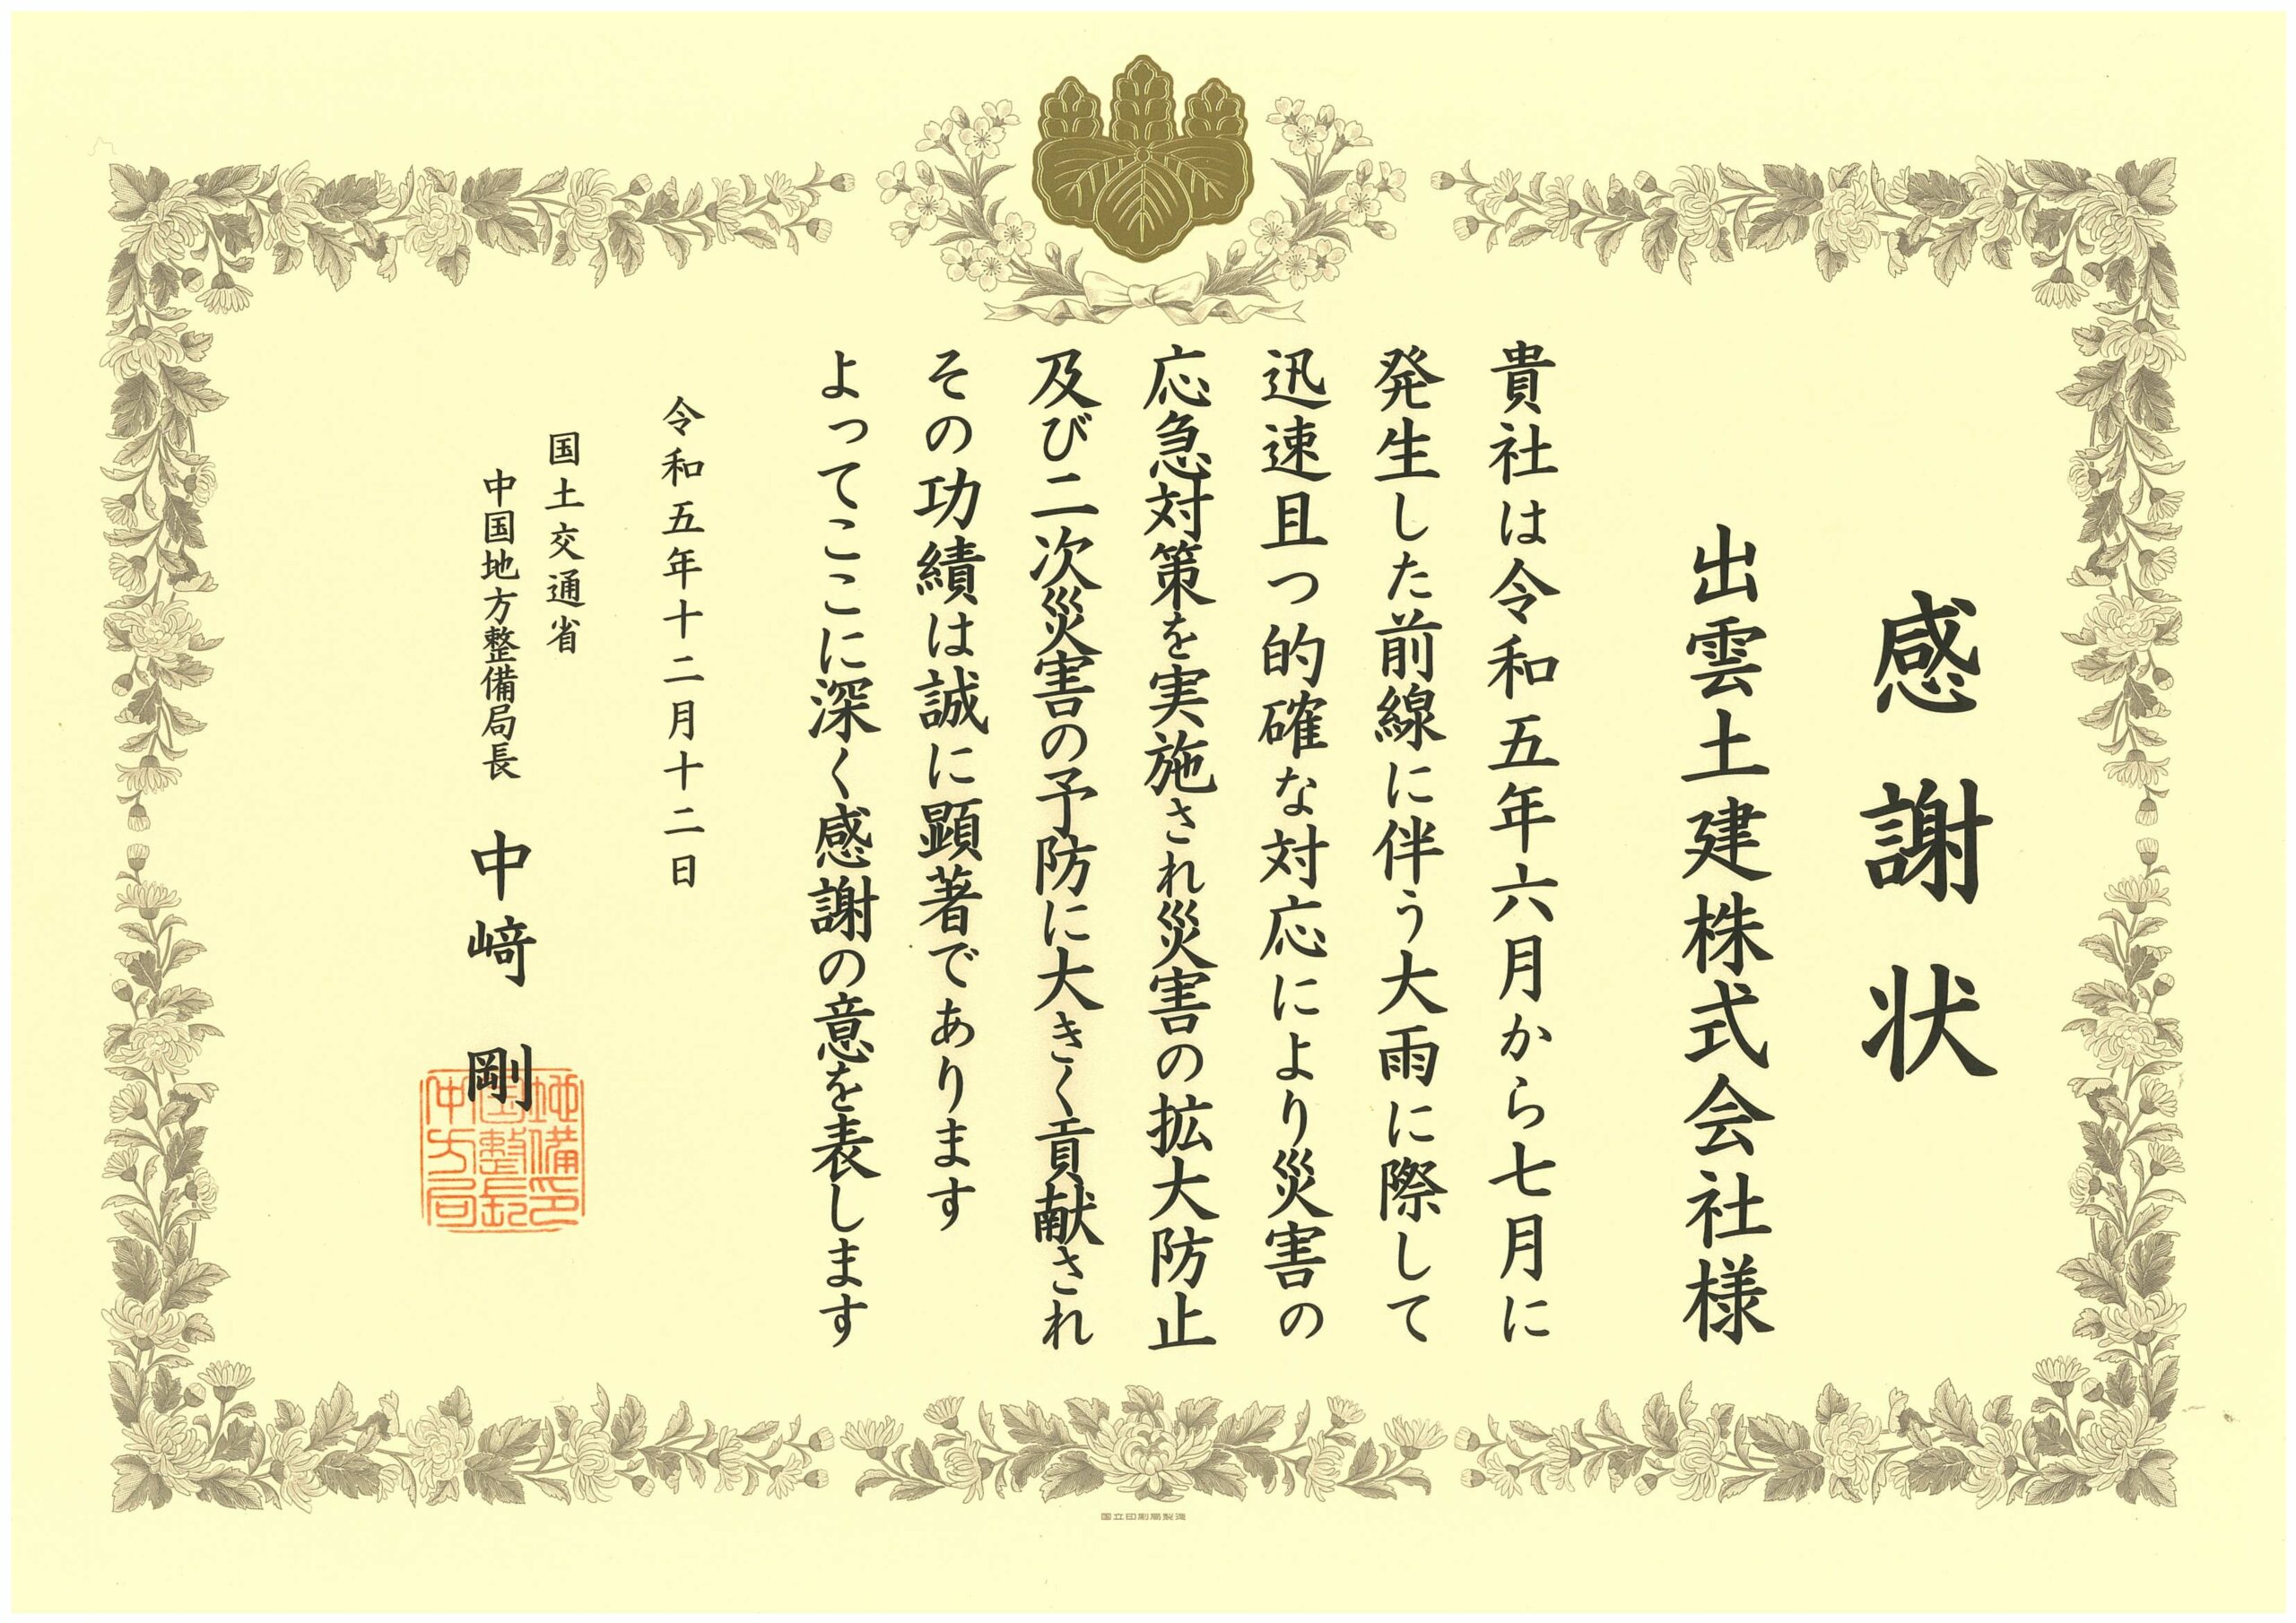 感謝状
出雲土建株式会社様
貴社は令和五年六月から七月に
発生した前線に伴う大雨に際して
迅速且つ的確な対応により災害の
応急対策を実施され災害の拡大防止
及び二次災害の予防に大きく貢献され
その功績は誠に顕著であります
よってここに深く感謝の意を表します
令和五年十二月十二日
国土交通省
中国地方整備局長 中﨑 剛
地備印
国整長
中方局
国立印刷局製造